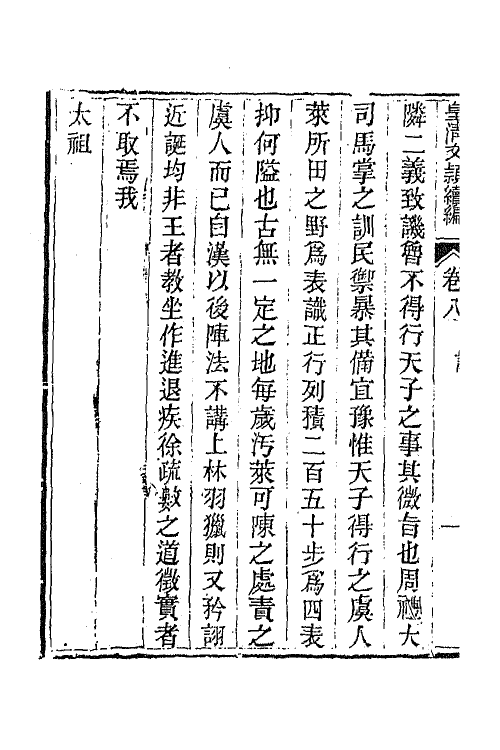 皇清文穎續編 卷八
隣二義致譏魯不得行天子之事其微旨也周禮大
司馬掌之訓民禦暴其備宜豫惟天子得行之虞人
萊所田之野爲表識正行列積二百五十步爲四表
抑何隘也古無一定之地每歲汚萊可陳之處責之
虞人而已自漢以後陣法不講上林羽獵則又矜詡
近誕均非王者教坐作進退疾徐疏數之道徵實者
不取焉我
太祖